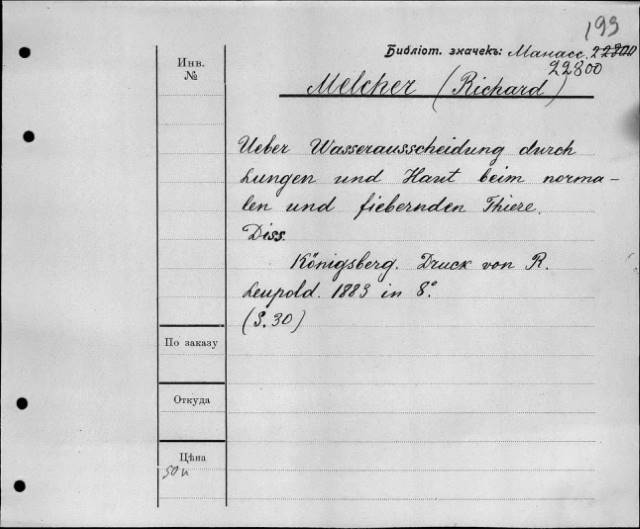 193
Инв.
№
Библіот. значекъ: Манасс. 22800
22800
Melcher (Richard)
Ueber Wasserausscheidung durch
Lungen und Haut beim norma-
len und fiebernden Thiere.
Diss.
Königsberg. Druck von R.
Leupold. 1883 in 8º.
(S. 30)
По заказу
Откуда
Цѣна
50 к